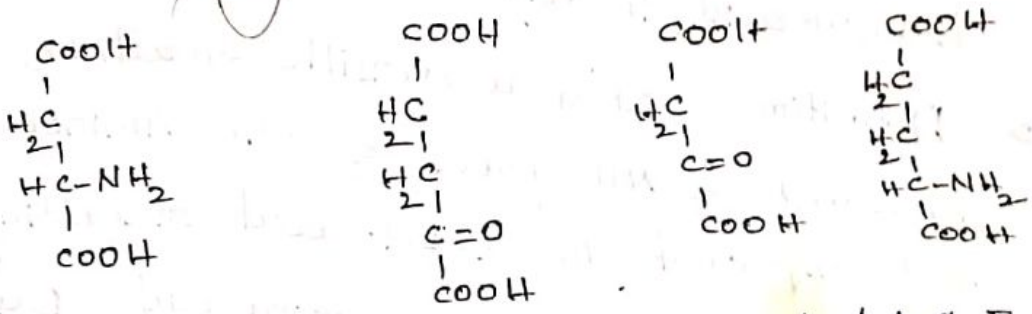 COOH
H2C
HC-NH2
COOH
COOH
H2C
H2C
C=O
COOH
COOH
H2C
C=O
COOH
COOH
H2C
H2C
HC-NH2
COOH